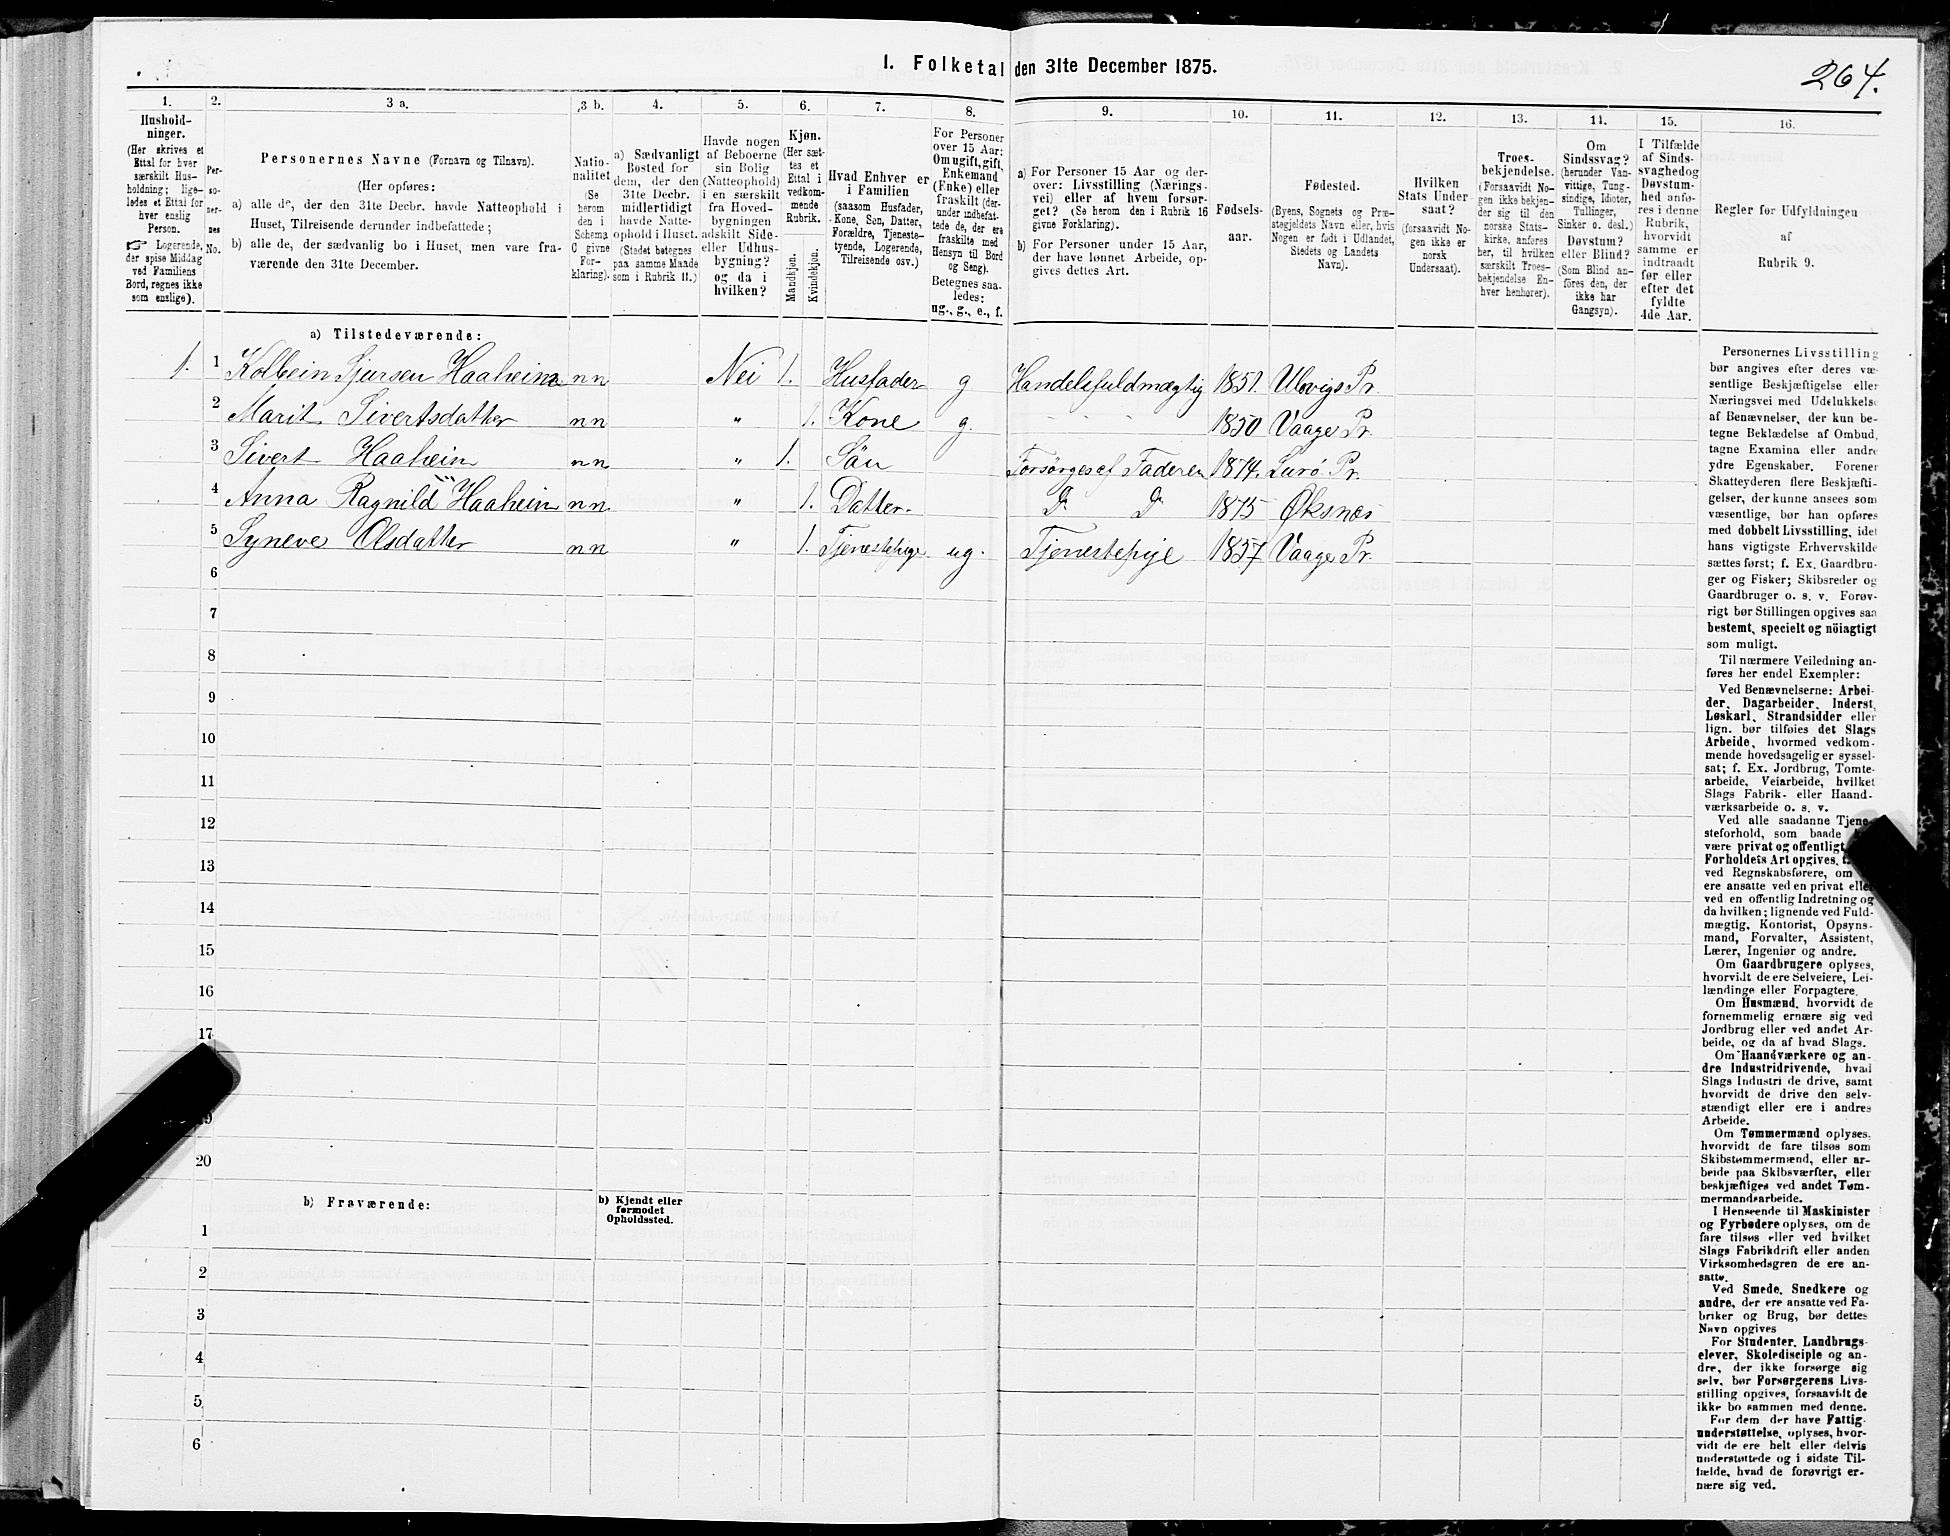 1. Folketal den 31te December 1875.
264.
1. 2. 3 a. 3 b. 4. 5. 6. 7. 8. 9. 10. 11. 12. 13. 14. 15. 16.
Hushold-
ninger.
(Her skrives et
Ettal for hver
særskilt Hus-
holdning; lige-
ledes et Ettal for
hver enslig
Person.
☞ Logerende,
der spise Middag
ved Familiens
Bord, regnes ikke
som enslige).
Per-
so-
ner-
nes
No.
Personernes Navne (Fornavn og Tilnavn).
(Her opføres:
a) alle de, der den 31te Decbr. havde Natteophold i
Huset, Tilreisende derunder indbefattede;
b) alle de, der sædvanlig bo i Huset, men vare fra-
værende den 31te December.
Natio-
nalitet
(Se
herom
den i
Schema
C givne
For-
klaring).
a) Sædvanligt
Bosted for
dem, der den
31te Decbr.
midlertidigt
havde Natte-
ophold i Huset.
(Stedet betegnes
paa samme Maade
som i Rubrik 11.)
Havde nogen
af Beboerne
sin Bolig
(Natteophold)
i en særskilt
fra Hoved-
bygningen
adskilt Side-
eller Udhus-
bygning?
og da i
hvilken?
Kjøn.
(Her sæt-
tes et
Ettal i
vedkom-
mende
Rubrik.
Mandkjøn.
Kvindekjøn.
Hvad Enhver er
i Familien
(saasom Husfader,
Kone, Søn, Datter,
Forældre, Tjeneste-
tyende, Logerende,
Tilreisende osv.).
For Personer
over 15 Aar:
Om ugift, gift,
Enkemand
(Enke) eller
fraskilt (der-
under indbefat-
tede de, der ere
fraskilte med
Hensyn til Bord
og Seng).
Betegnes saa-
ledes:
ug., g., e., f.
a) For Personer 15 Aar og der-
over: Livsstilling (Nærings-
vei) eller af hvem forsør-
get? (Se herom den i Rubrik 16
givne Forklaring).
b) For Personer under 15 Aar,
der have lønnet Arbeide, op-
gives dettes Art.
Fødsels-
aar.
Fødested.
(Byens, Sognets og Præ-
stegjeldets Navn eller, hvis
Nogen er født i Udlandet,
Stedets og Landets
Navn).
Hvilken
Stats Under
saat?
(forsaavidt No-
gen ikke er
norsk
Undersaat).
Troes-
bekjendelse.
(Forsaavidt No-
gen ikke bekjen-
der sig til den
norske Stats-
kirke, anføres
her, til hvilken
særskilt Troes-
bekjendelse En-
hver henhører).
Om
Sindssvag?
(herunder Van-
vittige, Tung-
sindige, Idioter,
Tullinger,
Sinker o. desl.)
Døvstum?
eller Blind?
(Som Blind an-
føres den, der
ikke har
Gangsyn).
I Tilfælde
af Sinds-
svaghed og
Døvstum-
hed anfø-
res i denne
Rubrik,
hvorvidt
samme er
indtraadt
før eller
efter det
fyldte
4de Aar.
Regler for Udfyldningen
af
Rubrik 9.
a) Tilstedeværende:
1. 1 Kolbein Sjursen Haaheim nn Nei 1. Husfader g Handelsfuldmægtig 1851. Ulvigs Pr.
2 Marit Sivertsdatter nn " 1. Kone g. 1850 Vaage Pr.
3 Sivert Haaheim nn " 1. Sön Forsørges af Faderen 1874. Lurö Pr.
4 Anna Ragnild Haaheim nn " 1. Datter. D D 1875 Øksnæs
5 Syneve Olsdatter nn " 1. Tjenestepige ug. Tjenestepige 1857 Vaage Pr.
6
7
8
9
10
11
12
13
14
15
16
17
20
b) Fraværende:
b) Kjendt eller
formodet
Opholdssted.
1
2
3
4
5
6
Personernes Livsstilling
bør angives efter deres væ-
sentlige Beskjæftigelse eller
Næringsvei med Udelukkelse
af Benævnelser, der kun be-
tegne Beklædelse af Ombud,
tagne Examina eller andre
ydre Egenskaber. Forener
Skatteyderen flere Beskjæfti-
gelser, der kunne ansees som
væsentlige, bør han opføres
med dobbelt Livsstilling, idet
hans vigtigste Erhvervskilde
sættes først; f. Ex. Gaardbru-
ger og Fisker; Skibsreder og
Gaardbruger o. s. v. Forøv-
rigt bør Stillingen opgives saa
bestemt, specielt og nöiagtigt
som muligt.
Til nærmere Veiledning an-
føres her endel Exempler:
Ved Benævnelserne: Arbei-
der, Dagarbeider, Inderst,
Løskarl, Strandsidder eller
lign. bør tilføies det Slags
Arbeide, hvormed vedkom-
mende hovedsagelig er syssel-
sat; f. Ex. Jordbrug, Tomte-
arbeide, Veiarbeide, hvilket
Slags Fabrik- eller Haand-
værksarbeide o. s. v.
Ved alle saadanne Tjene-
steforhold, som baade
være privat og offentligt,
Forholdets Art opgives,
ved Regnskabsførere, om
ere ansatte ved en privat eller
ved en offentlig Indretning og
da hvilken; lignende ved Fuld-
mægtig, Kontorist, Opsyns-
mand, Forvalter, Assistent,
Lærer, Ingeniør og andre.
Om Gaardbrugere oplyses,
hvorvidt de ere Selveiere, Lei-
lændinge eller Forpagtere.
Om Husmænd, hvorvidt de
fornemmelig ernære sig ved
Jordbrug eller ved andet Ar-
beide, og da af hvad Slags.
Om Haandværkere og an-
dre Industridrivende, hvad
Slags Industri de drive, samt
hvorvidt de drive den selv-
stændigt eller ere i andres
Arbeide.
Om Tømmermænd oplyses,
hvorvidt de fare tilsøs som
Skibstømmermænd, eller ar-
beide paa Skibsværfter, eller
beskjæftiges ved andet Tøm-
mermandsarbeide.
I Henseende til Maskinister
og Fyrbødere oplyses, om de
fare tilsøs eller ved hvilket
Slags Fabrikdrift eller anden
Virksomhedsgren de ere an-
satte.
Ved Smede, Snedkere og
andre, der ere ansatte ved Fa-
briker og Brug, bør dettes
Navn opgives
For Studenter, Landbrugs-
elever, Skoledisciple og an-
dre, der ikke forsørge sig
selv, bør Forsørgerens Livs-
stilling opgives, forsaavidt de
ikke bo sammen med denne.
For dem, der have Fattig-
understøttelse, oplyses, hvor-
vidt de ere helt eller delvis
understøttede og i sidste Til-
fælde, hvad de forøvrigt er-
nære sig ved.